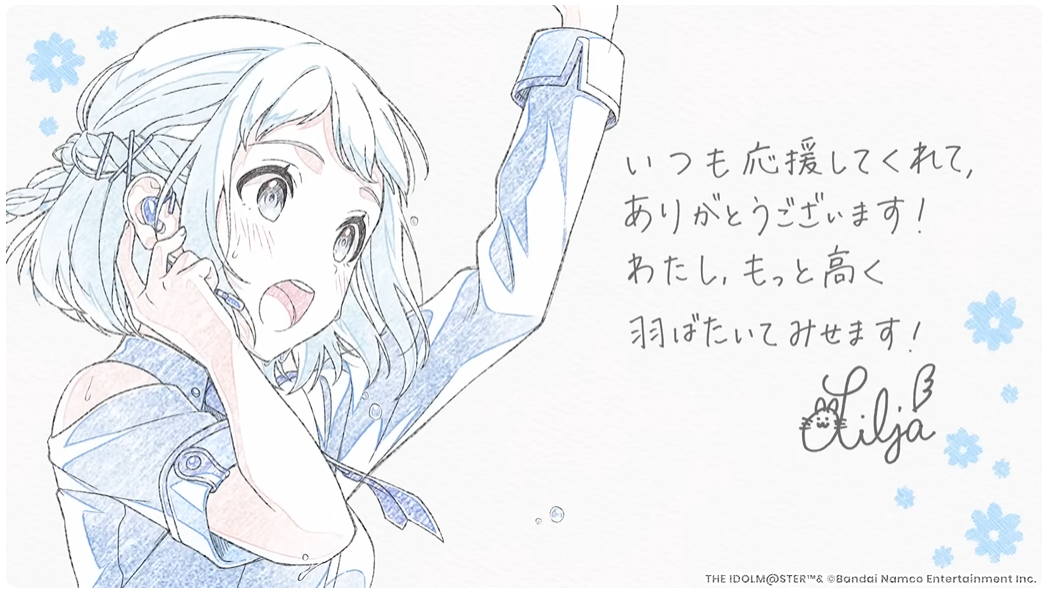 いつも応援してくれて,
ありがとうございます!
わたし,もっと高く
羽ばたいてみせます!
Lilja
THE IDOLM@STER™& ©Bandai Namco Entertainment Inc.